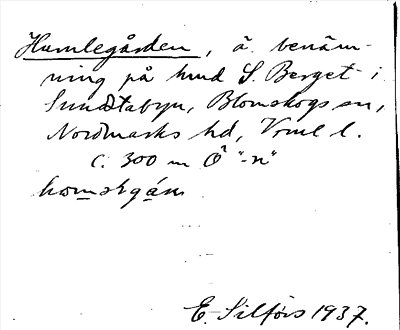 Humlegården, ä. benäm-
ning på hmd S. Berget i
Smedstabyn, Blomskogs sn,
Nordmarks hd, Vrml l.
C. 300 m Ö "-n"
E. Silfors 1937.